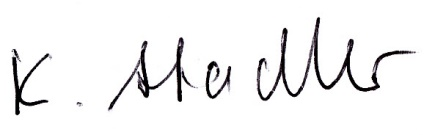 K. Stadler